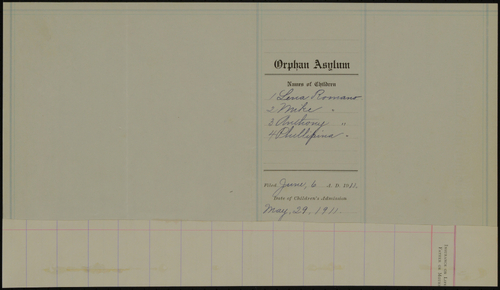 Orphan Asylum
Names of Children
1 Lena Romano
2 Mike "
3 Anthony "
4 Phillipina "
Filed June, 6 A. D. 1911.
Date of Children's Admission
May, 29, 1911.